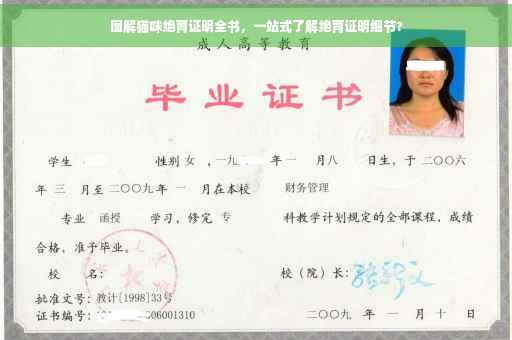 图解猫咪绝育证明全书，一站式了解绝育证明细节?
成人高等教育
毕业证书
学生 性别 女 ，一九 年 一 月八 日生，于 二〇〇六
年 三 月至 二〇〇九 年 一 月在本校 财务管理
专业 函授 学习，修完 专 科教学计划规定的全部课程，成绩
合格，准予毕业。
校 名： 校（院）长：
批准文号：教计[1998]33号
证书编号： 006001310 二〇〇九 年 一 月 十 日